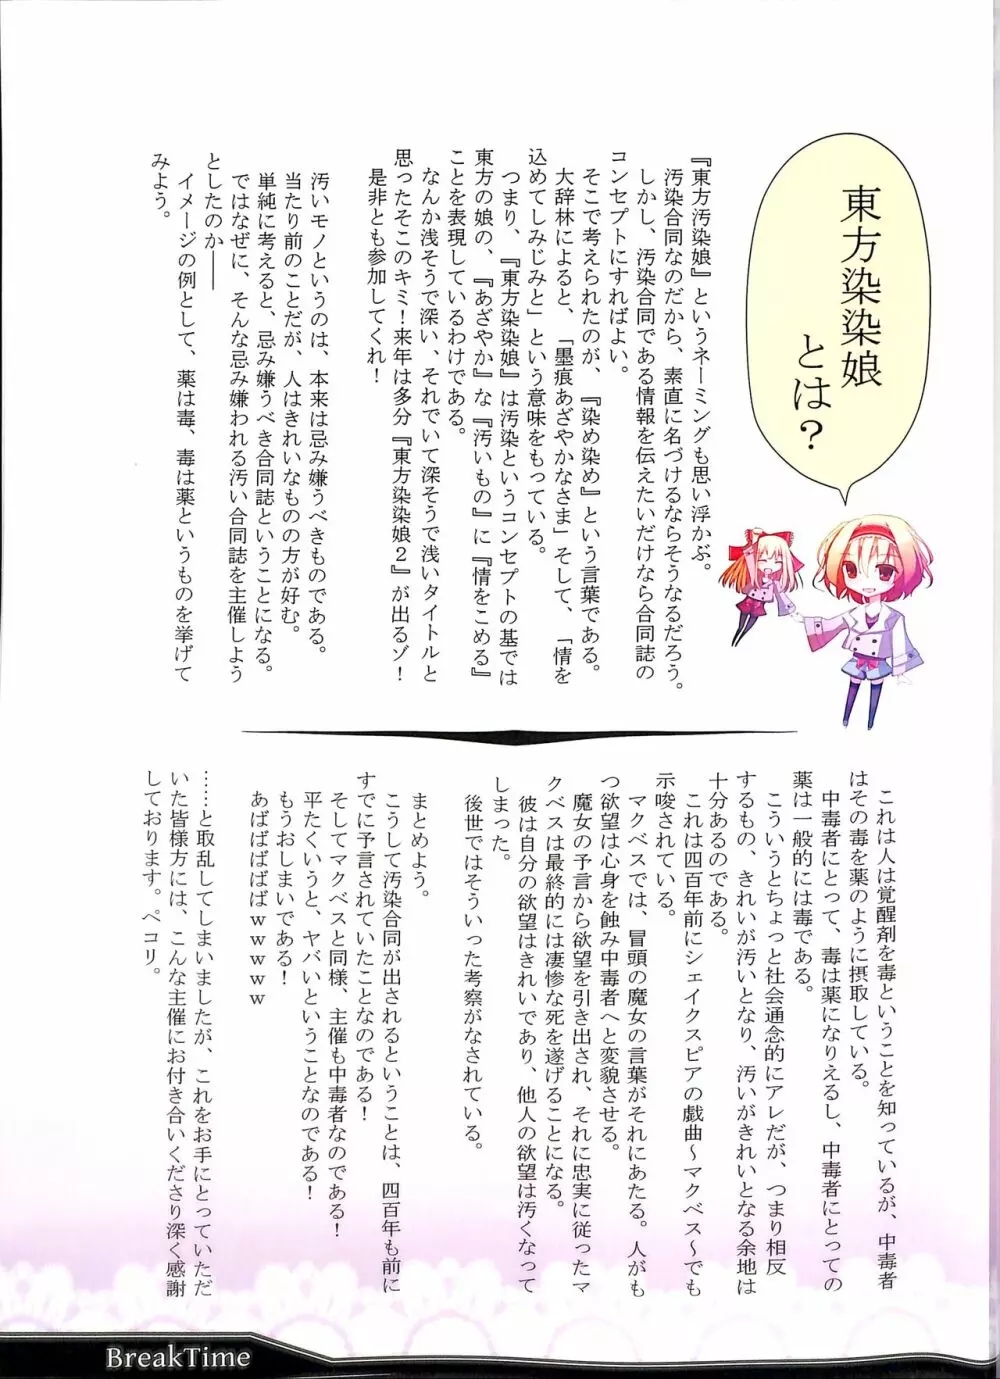 東方染染娘
とは？
『東方汚染娘』というネーミングも思い浮かぶ。
汚染合同なのだから、素直に名づけるならそうなるだろう。
しかし、汚染合同である情報を伝えたいだけなら合同誌の
コンセプトにすればよい。
そこで考えられたのが、『染め染め』という言葉である。
大辞林によると、「墨痕あざやかなさま」そして、「情を
込めてしみじみと」という意味をもっている。
つまり、『東方染染娘』は汚染というコンセプトの基では
東方の娘の、『あざやか』な『汚いもの』に『情をこめる』
ことを表現しているわけである。
なんか浅そうで深い、それでいて深そうで浅いタイトルと
思ったそこのキミ！来年は多分『東方染染娘２』が出るゾ！
是非とも参加してくれ！
汚いモノというのは、本来は忌み嫌うべきものである。
当たり前のことだが、人はきれいなものの方が好む。
単純に考えると、忌み嫌うべき合同誌ということになる。
ではなぜに、そんな忌み嫌われる汚い合同誌を主催しよう
としたのか――
イメージの例として、薬は毒、毒は薬というものを挙げて
みよう。
これは人は覚醒剤を毒ということを知っているが、中毒者
はその毒を薬のように摂取している。
中毒者にとって、毒は薬になりえるし、中毒者にとっての
薬は一般的には毒である。
こういうとちょっと社会通念的にアレだが、つまり相反
するもの、きれいが汚いとなり、汚いがきれいとなる余地は
十分あるのである。
これは四百年前にシェイクスピアの戯曲～マクベス～でも
示唆されている。
マクベスでは、冒頭の魔女の言葉がそれにあたる。人がも
つ欲望は心身を蝕み中毒者へと変貌させる。
魔女の予言から欲望を引き出され、それに忠実に従ったマ
クベスは最終的には凄惨な死を遂げることになる。
彼は自分の欲望はきれいであり、他人の欲望は汚くなって
しまった。
後世ではそういった考察がなされている。
まとめよう。
こうして汚染合同が出されるということは、四百年も前に
すでに予言されていたことなのである！
そしてマクベスと同様、主催も中毒者なのである！
平たくいうと、ヤバいということなのである！
もうおしまいである！
あばばばばばｗｗｗｗｗ
……と取乱してしまいましたが、これをお手にとっていただ
いた皆様方には、こんな主催にお付き合いくださり深く感謝
しております。ペコリ。
BreakTime